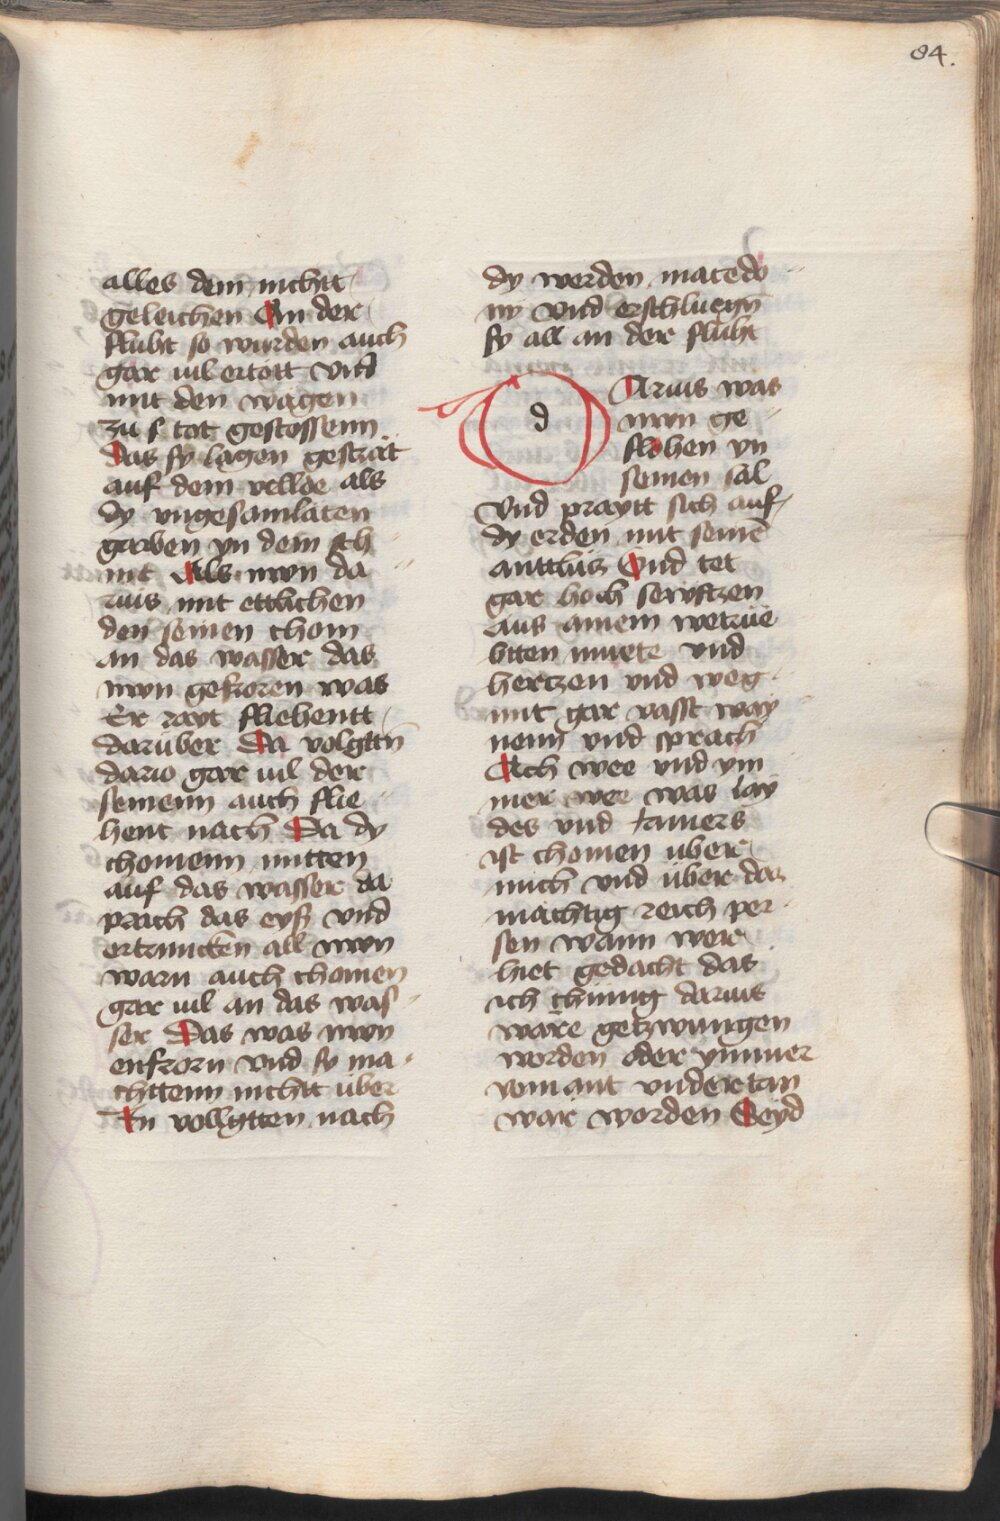 84.
alles dem nichtt
geleichen An der
flucht so wurden auch
gar uil ertott Vnd
mit den wagen
zu s tot gestossenn
Das sy lagen gesträt
auf dem vellde als
dy vngesamlaten
garben yn dem sch
nit Als nwn da
rius mit ettlichen
den seinen chom
an das wasser das
nwn gefroren was
Er rayt fliehentt
darüber Da volgttn
dario gar uil der
seinenn auch flie
hent nach Da dy
chomenn mitten
auf das wasser da
prach das eyß vnd
ertruncken all nwn
warn auch chomen
gar uil an das was
ser Das was nwn
enfrorn vnd sy ma
chttenn nichtt über
In vollgtten nach
dy werden macedo
ny vnd erschluegn
sy all an der fluht
d
DAruis was
nwn ge
flohen yn
seinen sal
Vnd praytt sich auf
dy erden mit seinē
anttlüz Vnd tet
gar hoch sewftzen
aus ainem wetrüe
btten muete vnd
hertzen vnd weg
mit gar vasst way
nenn vnd sprach
Ach wee vnd ym
mer wee was lay
des vnd iamers
ist chomen uber
mich vnd über das
mächtig reich per
sen wann wer
hiet gedacht das
ich chünig darius
wäre getzwungen
worden oder ymmer
yemant vndertan
wär worden Seyd